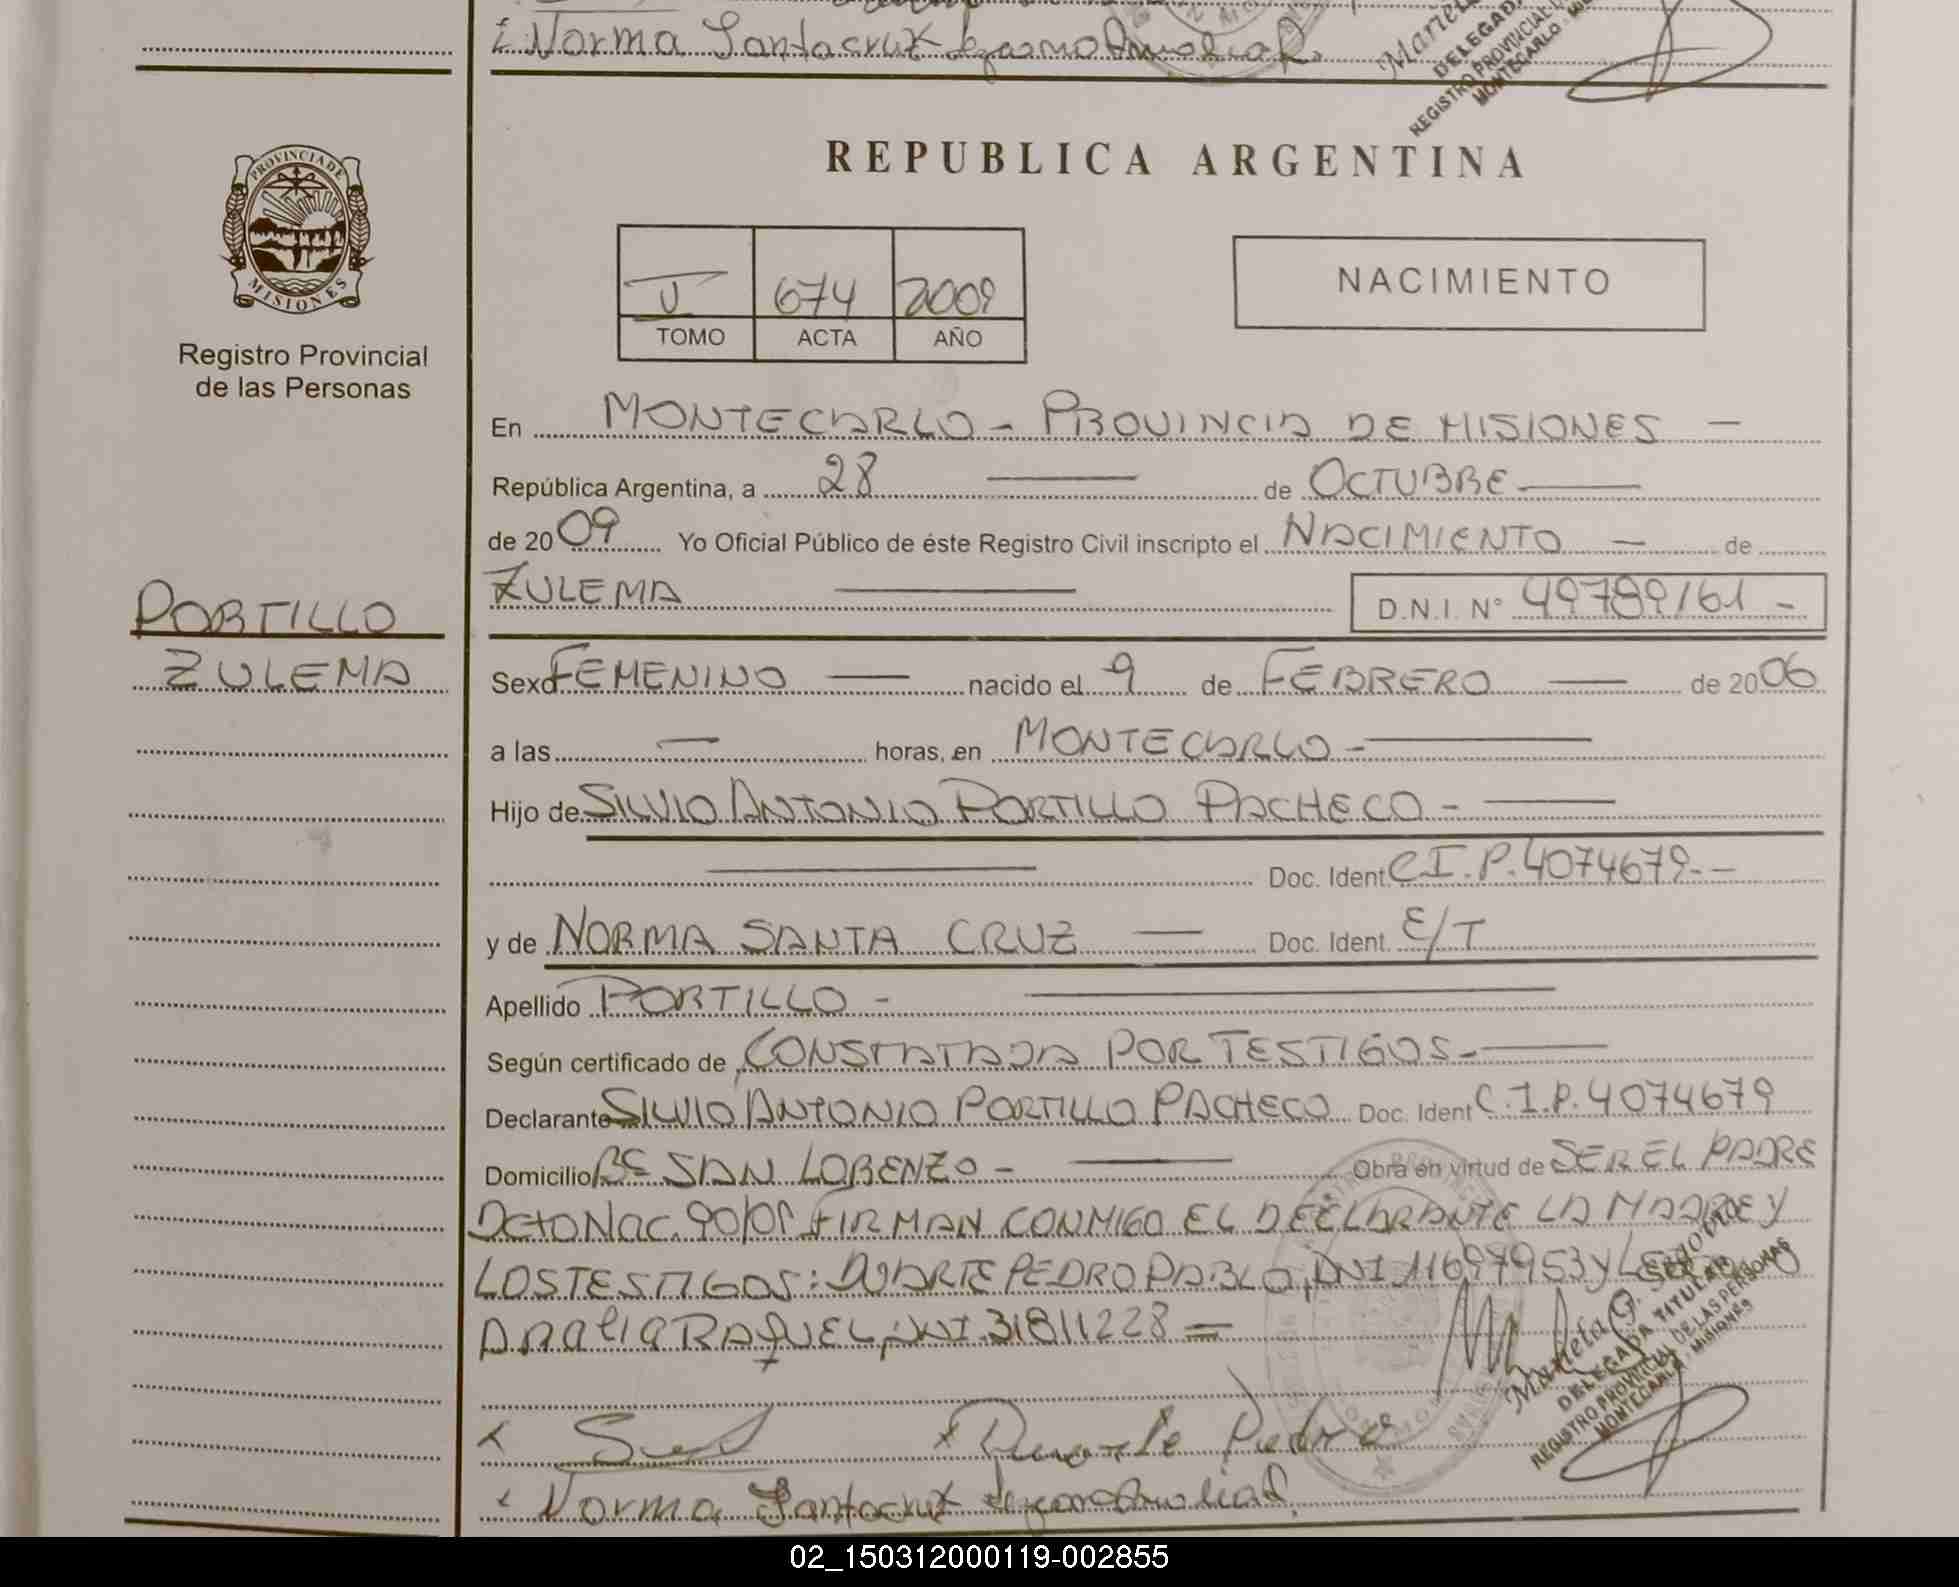 Norma Santacruz
DELEGADA
REGISTRO PROVINCIAL
MONTECARLO
PROVINCIA DE
MISIONES
Registro Provincial
de las Personas
REPUBLICA ARGENTINA
V 674 2009
TOMO ACTA AÑO
NACIMIENTO
En MONTECARLO - PROVINCIA DE MISIONES —
República Argentina, a 28 — de OCTUBRE —
de 2009 Yo Oficial Público de éste Registro Civil inscripto el NACIMIENTO — de
ZULEMA — D.N.I. N° 49789161 -
PORTILLO
ZULEMA
Sexo FEMENINO — nacido el 9 de FEBRERO — de 2006
a las — horas, en MONTECARLO -
Hijo de SILVIO ANTONIO PORTILLO PACHECO -
Doc. Ident C.I.P. 4074679.-
y de NORMA SANTA CRUZ — Doc. Ident. E/T
Apellido PORTILLO -
Según certificado de CONSTATADA POR TESTIGOS.-
Declarante SILVIO ANTONIO PORTILLO PACHECO Doc. Ident C.I.P. 4074679
Domicilio Bº SAN LORENZO - Obra en virtud de SER EL PADRE
DctoNac. 90/09 FIRMAN CONMIGO EL DECLARANTE LA MADRE Y
LOS TESTIGOS: DUARTE PEDRO PABLO, DNI 11697953 y
ANALIA RAQUEL, DNI. 31811228 =
Marieta G.
DELEGADA TITULAR
REGISTRO PROVINCIAL DE LAS PERSONAS
MONTECARLO - MISIONES
Duarte Pedro
Norma Santacruz
02_150312000119-002855